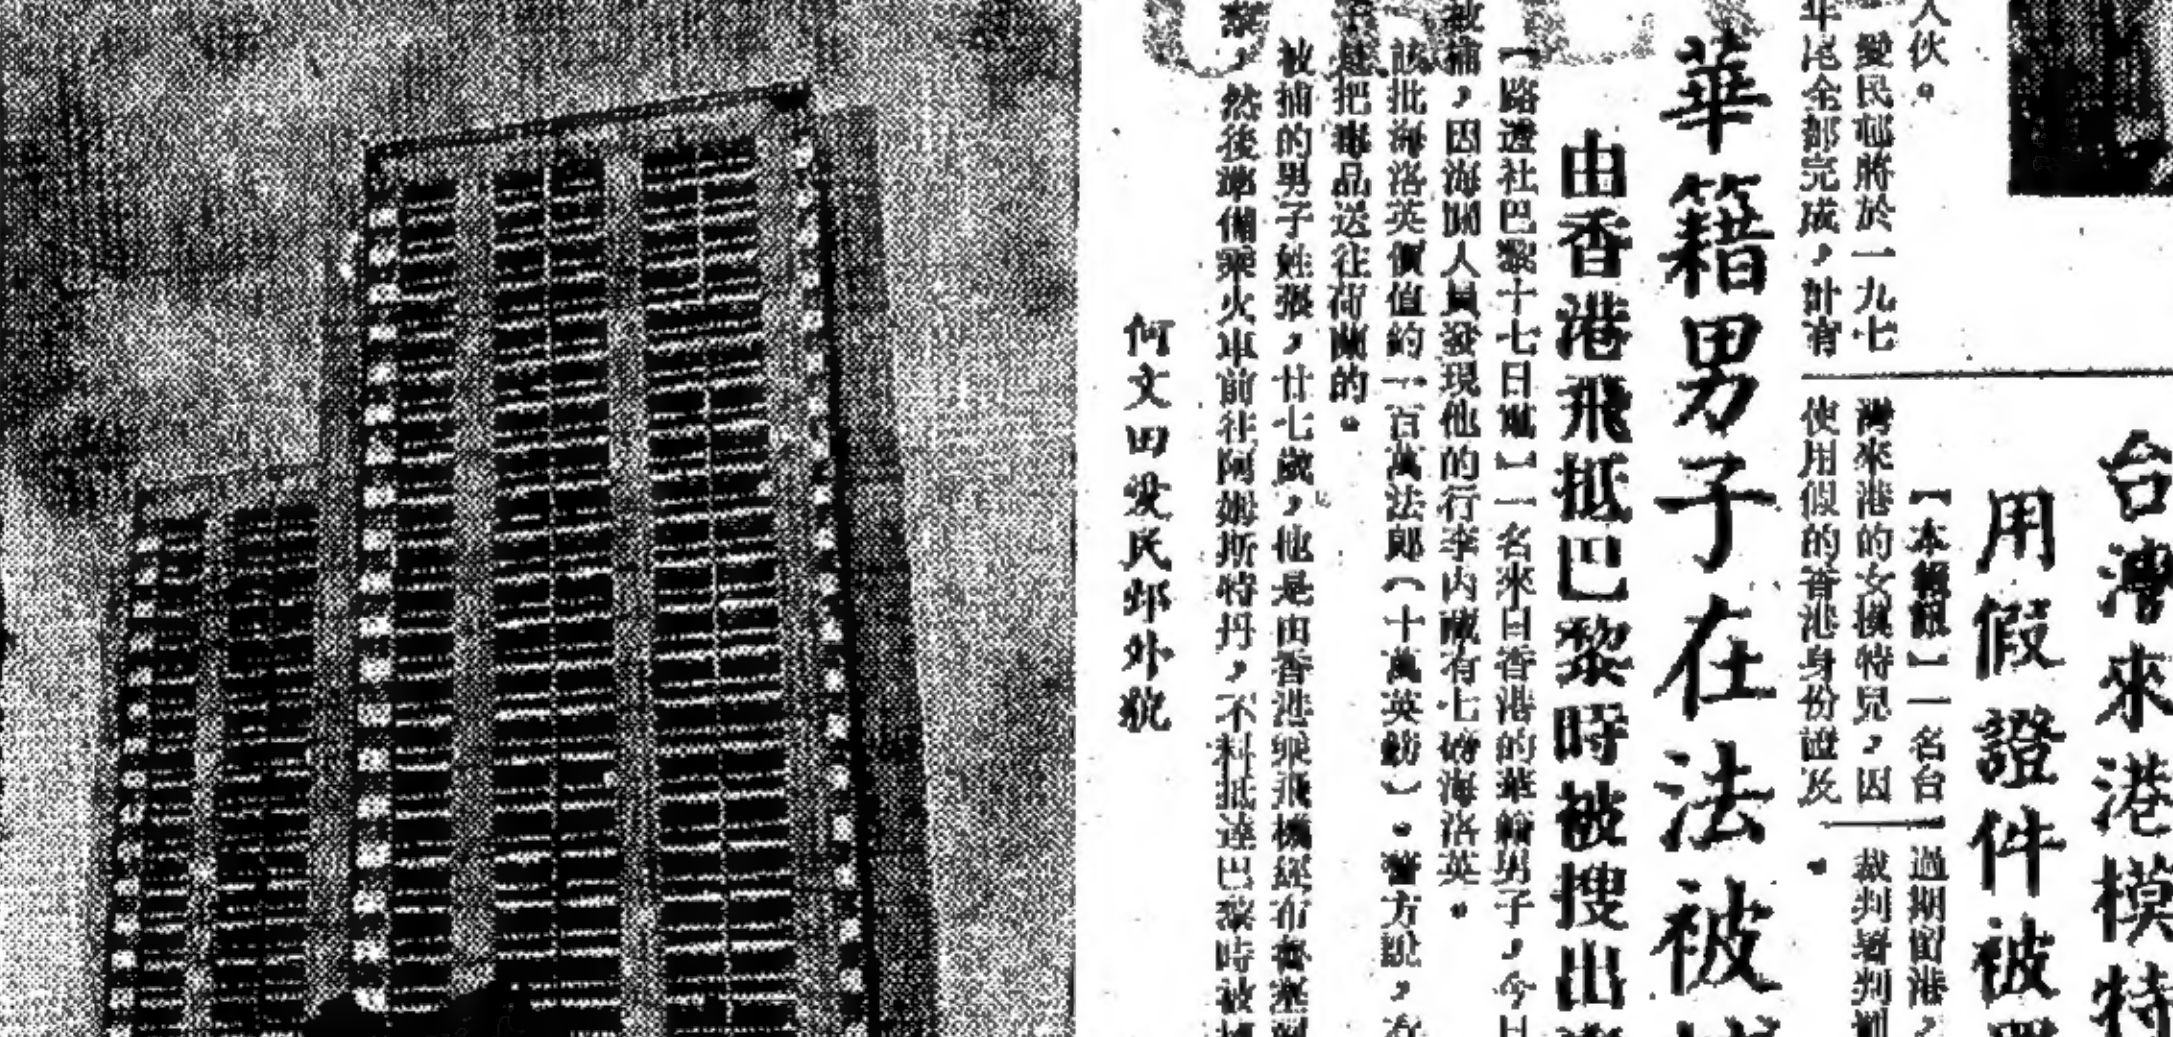 人伙。
愛民邨將於一九七
年尾全部完成，計有
台灣來港模特
用假證件被
【本報訊】一名台
灣來港的女模特兒，因
使用假的香港身份證及
過期留港，
裁判署判
華籍男子在法被
由香港飛抵巴黎時被搜出
【路透社巴黎十七日電】一名來自香港的華籍男子，今日
被捕，因海關人員發現他的行李內藏有七磅海洛英。
該批海洛英價值約一百萬法郎（十萬英鎊）。警方說，
是把毒品送往荷蘭的。
被捕的男子姓張，廿七歲，他是由香港乘飛機經布魯塞爾
，然後準備乘火車前往阿姆斯特丹，不料抵達巴黎時被
何文田愛民邨外貌